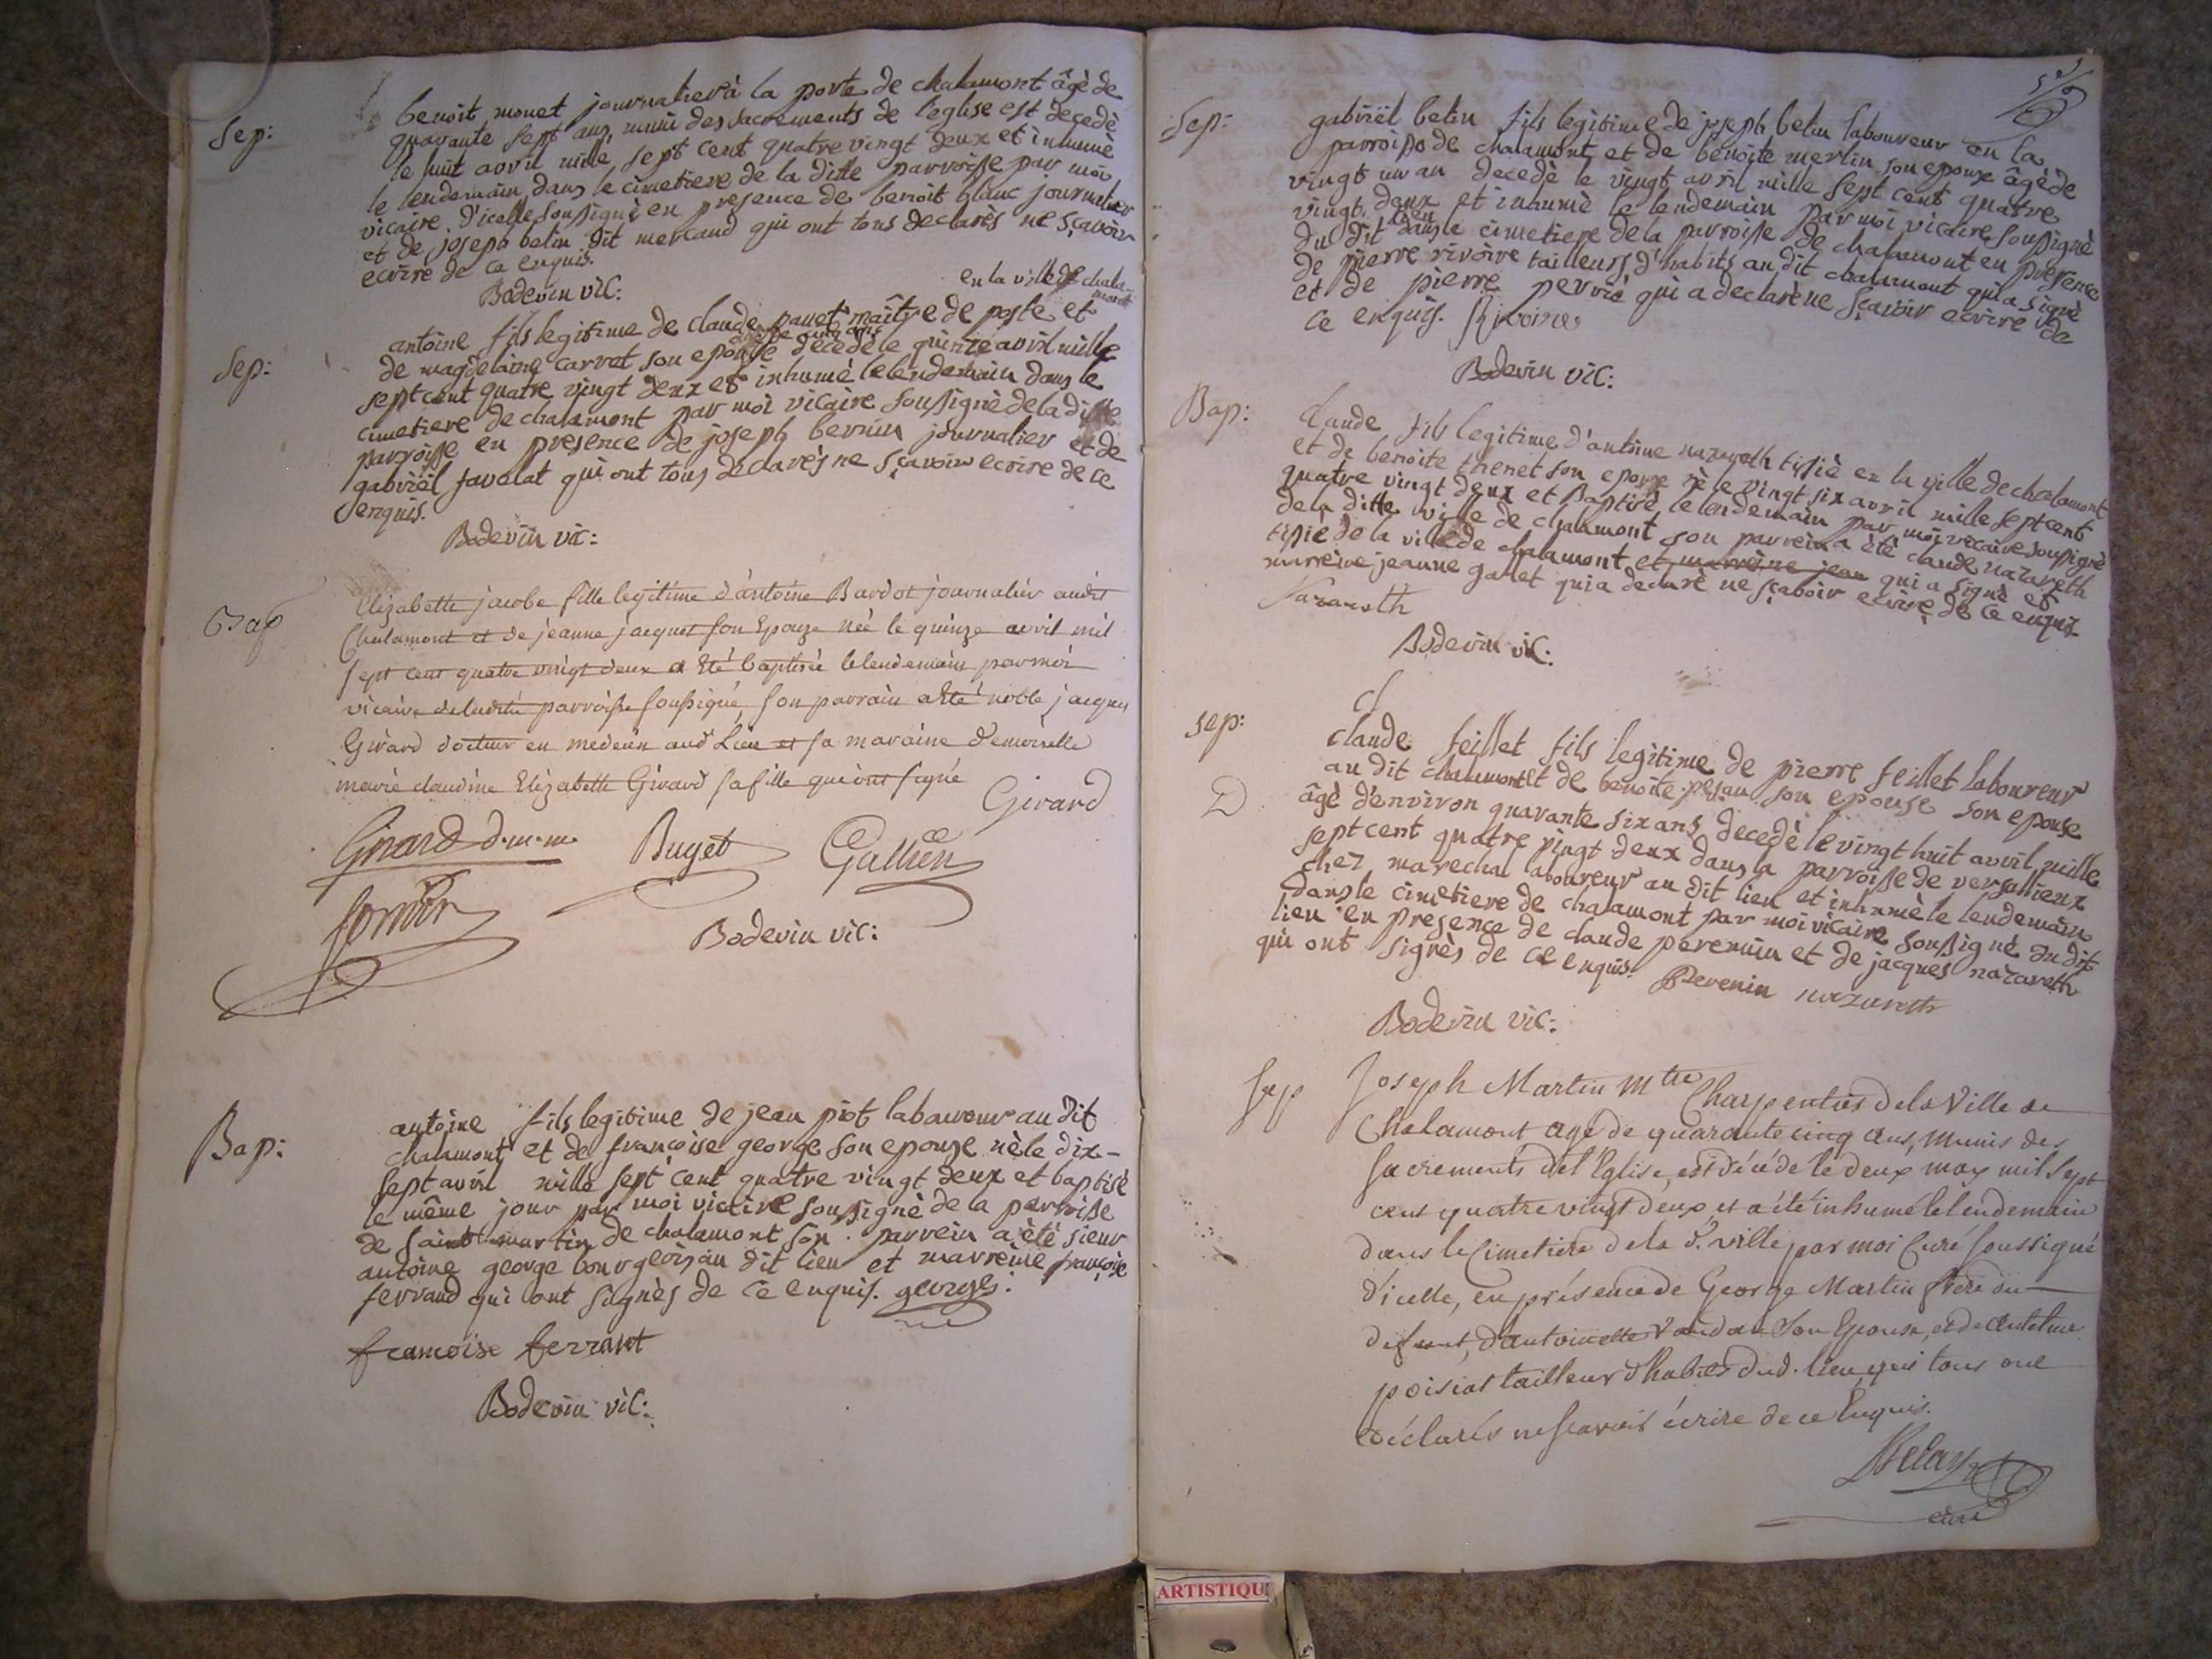 Sep:
benoit monet journalier à la porte de chalamont âgè de
quarante sept ans, muni des sacrements de l'eglise est decedè
le huit avril mille sept cent quatre vingt deux et inhumè
le lendemain dans le cimetiere de la ditte parroisse par moi
vicaire d'icelle soussignè en presence de benoit blanc journalier
et de joseph belin dit mercaud qui ont tous declarès ne sçavoir
ecrire de ce enquis.
Bodevin vic:
en la ville de chala-
mont
Sep:
antoine fils legitime de claude panet maître de poste et
de magdelaine carvat son epouse decedè le quinze avril mille
sept cent quatre vingt deux et inhumè le lendemain dans le
cimetiere de chalamont par moi vicaire soussignè de la ditte
parroisse en presence de joseph bernin journalier et de
gabrièl favolat qui ont tous declarès ne sçavoir ecrire de ce
enquis.
Bodevin vic:
Bap
Elizabette jacobe fille legitime d'antoine Bardot journalier audit
Chalamont et de jeanne jacquet son Epouze née le quinze avril mil
sept cent quatre vingt deux a Eté baptisée le lendemain par moi
vicaire de ladite parroisse soussigné, son parrain a Eté noble jacques
Girard docteur en medecin aud Lieu et sa maraine Demoiselle
marie claudine Elizabette Girard sa fille qui ont signé
Girard
Girard d.m.m. Buget Gallien
Bodevin vic:
Bap:
antoine fils legitime de jean piot laboureur au dit
chalamont et de françoise george son epouze nè le dix-
sept avril mille sept cent quatre vingt deux et baptisè
le même jour par moi vicaire soussignè de la parroisse
de saint martin de chalamont son parrein a ètè sieur
antoine george bourgeois au dit lieu et marreine françoise
ferrand qui ont signès de ce enquis. georges.
francoise ferrant
Bodevin vic:
Sep:
gabrièl belin fils legitime de joseph belin laboureur en la
parroisse de chalamont et de benoite merlin son epouse âgè de
vingt un an decedè le vingt avril mille sept cent quatre
vingt deux et inhumè le lendemain par moi vicaire soussignè
du dit lieu dans le cimetiere de la parroisse de chalamont en presence
de pierre rivoire tailleurs d'habits au dit chalamont qui a signè
et de pierre perriè qui a declarè ne sçavoir ecrire de
ce enquis. Rivoire
Bodevin vic:
Bap:
Claude fils legitime d'antoine nazareth tissiè en la ville de chalamont
et de benoite thenet son epouse nè le vingt six avril mille sept cent
quatre vingt deux et Baptisè le lendemain par moi vicaire soussignè
de la ditte ville de chalamont son parrein a ètè claude nazareth
tissiè de la ville de chalamont et marreine jean qui a signè et
marreine jeanne galet qui a declarè ne sçavoir ecrire de ce enquis
Nazareth
Bodevin vic:
sep:
Cl
claude feillet fils legitime de pierre feillet laboureur
au dit chalamont et de benoite son epouse son epouse
âgè d'environ quarante six ans decedè le vingt huit avril mille
D
sept cent quatre vingt deux dans la parroisse de versallieux
chez marechal laboureur au dit lieu et inhumè le lendemain
dans le cimetiere de chalamont par moi vicaire soussigné du dit
lieu en presence de claude perennin et de jacques nazareth
qui ont signès de ce enquis. Perenin nazareth
Bodevin vic:
Sep
Joseph Martin Mtre Charpentier de la Ville de
Chalamont agé de quarante cinq ans, Munis des
sacrements de l'Eglise, est décédé le deux may mil sept
cent quatre vingt deux et a été inhumé le lendemain
dans le Cimetiere de la d. ville par moi Curé soussigné
d'icelle, en présence de George Martin frere du
defunt, d'antoinette son Epouse, et de Antelme
poisiat tailleur d'habits dud. lieu qui tous ont
déclarés ne scavoir écrire de ce Enquis.
curé
ARTISTIQU